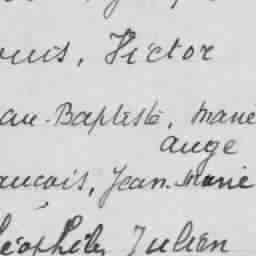 ouis, Victor
ean-Baptiste, Marie
Ange
ancois, Jean-Marie
Théophile, Julien